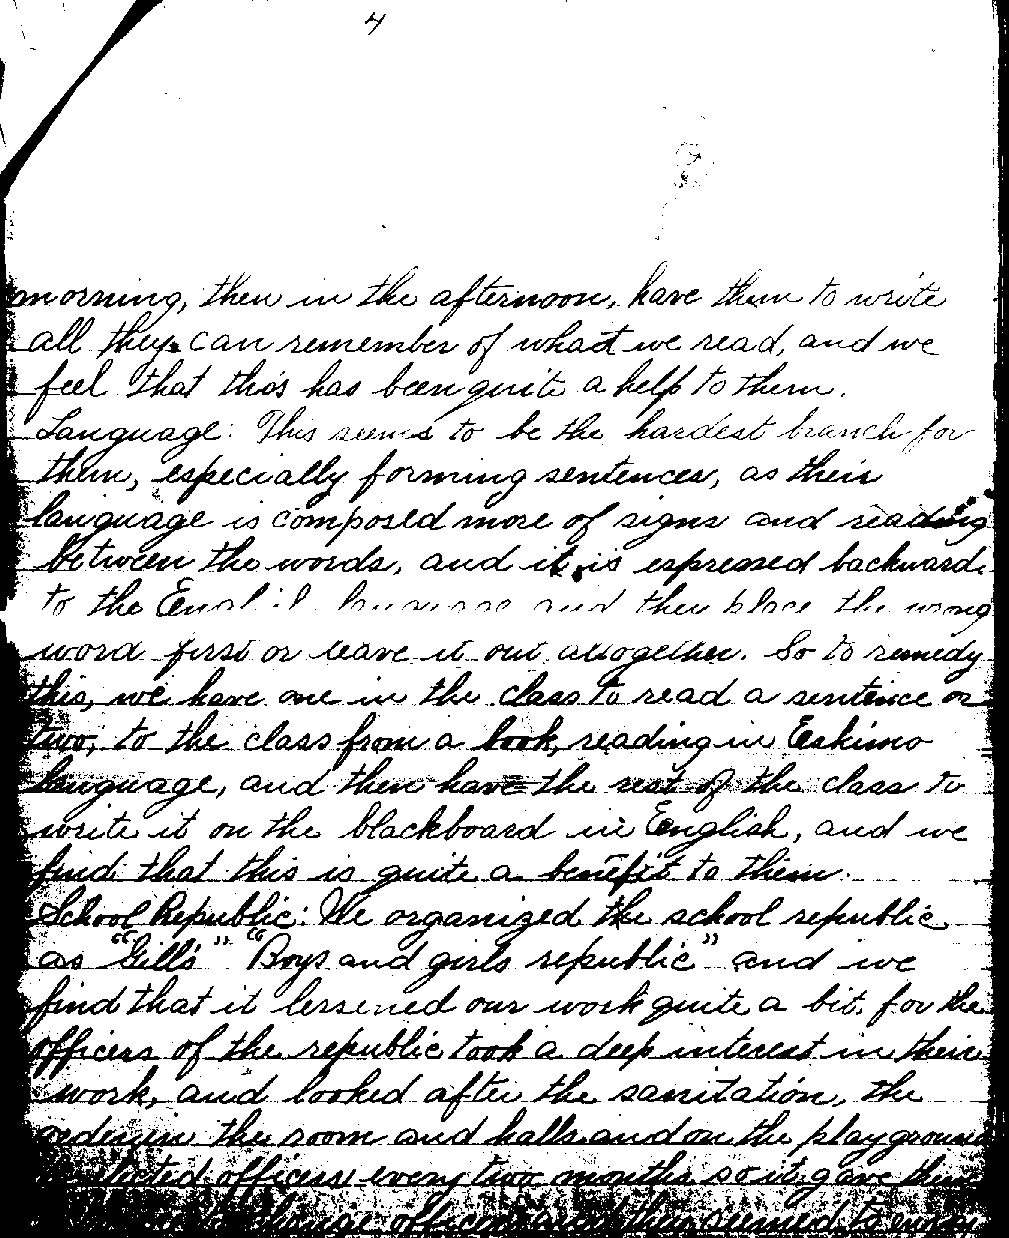 4
morning, then in the afternoon, have them to write
all they can remember of what we read, and we
feel that this has been quite a help to them.
Language: This seems to be the hardest branch for
them, especially forming sentences, as their
language is composed more of signs and reading
between the words, and it is expressed backwards
to the English language and they place the wrong
word first or leave it out altogether. So to remedy
this, we have one in the class to read a sentence or
two, to the class from a book, reading in Eskimo
language, and then have the rest of the class to
write it on the blackboard in English, and we
find that this is quite a benefit to them.
School Republic: We organized the school republic
as "Gill's" "Boys and girls republic" and we
find that it lessened our work quite a bit, for the
officers of the republic took a deep interest in their
work, and looked after the sanitation, the
order in the room and halls and on the play ground
elected officers every two months so it gave them
change officers and they seemed to enjoy